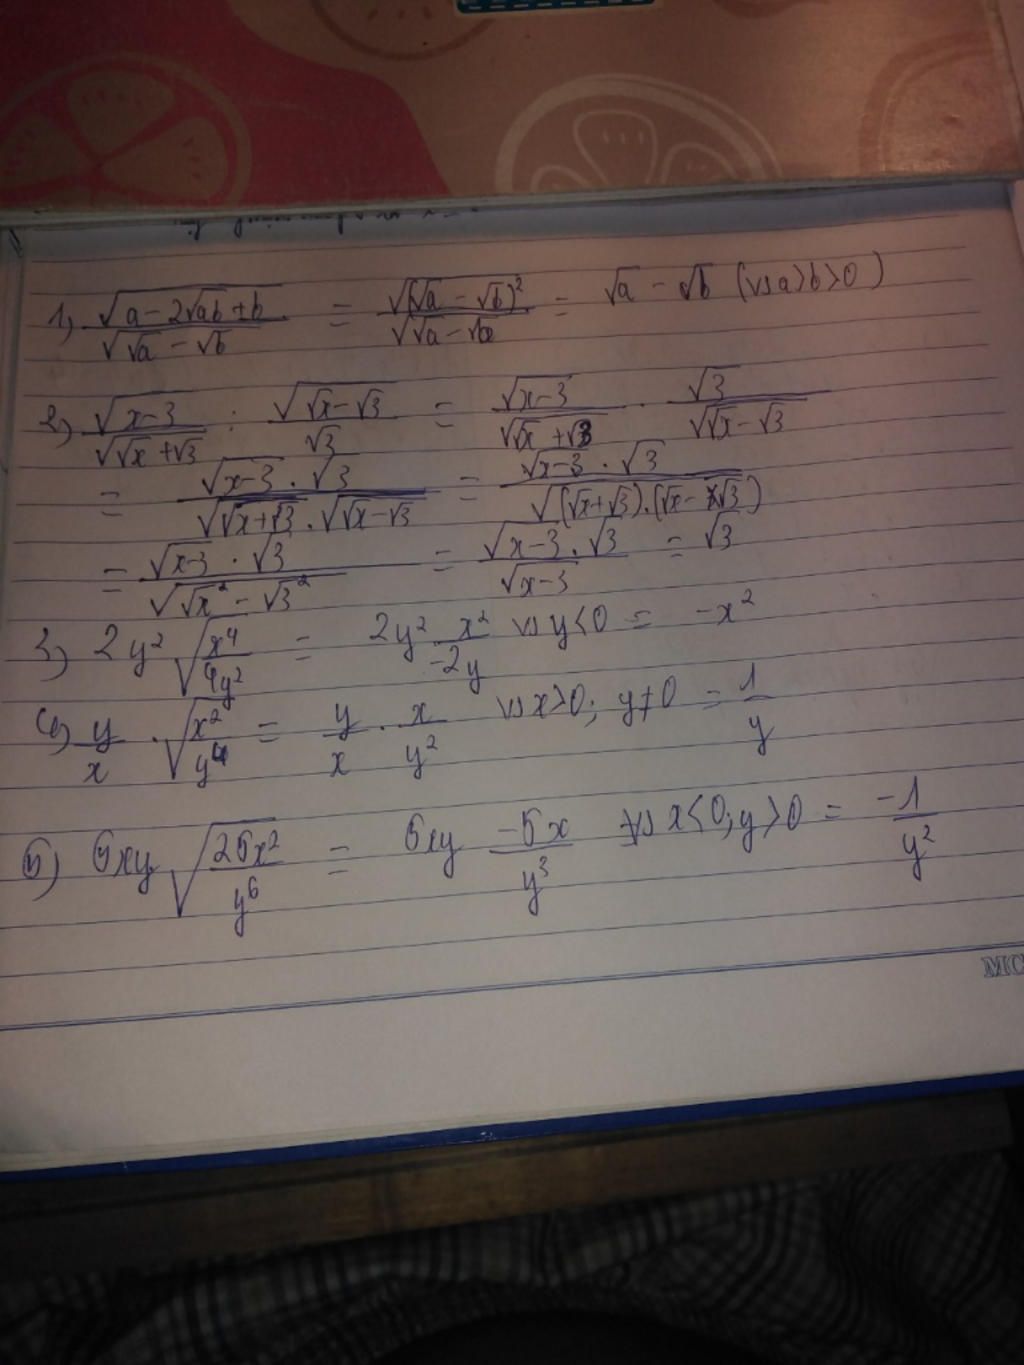 1, √(a-2√ab+b) / √(√a-√b) = √(√a-√b)² / √(√a-√b) = √a - √b (với a>b>0)
2, √(x-3) / √(√x+√3) : √(√x-√3) / √3 = √(x-3) / √(√x+√3) . √3 / √(√x-√3)
= √(x-3) . √3 / √(√x+√3) . √(√x-√3) = √(x-3) . √3 / √((√x+√3).(√x-√3))
= √(x-3) . √3 / √(√x²-√3²) = √(x-3) . √3 / √(x-3) = √3
3, 2y² √(x⁴/4y²) = 2y² x²/-2y với y<0 = -x²
4, y/x . √(x²/y⁴) = y/x . x/y² với x>0; y≠0 = 1/y
5) 5xy √(25x²/y⁶) = 5xy -5x/y³ với x<0; y>0 = -1/y²
MC